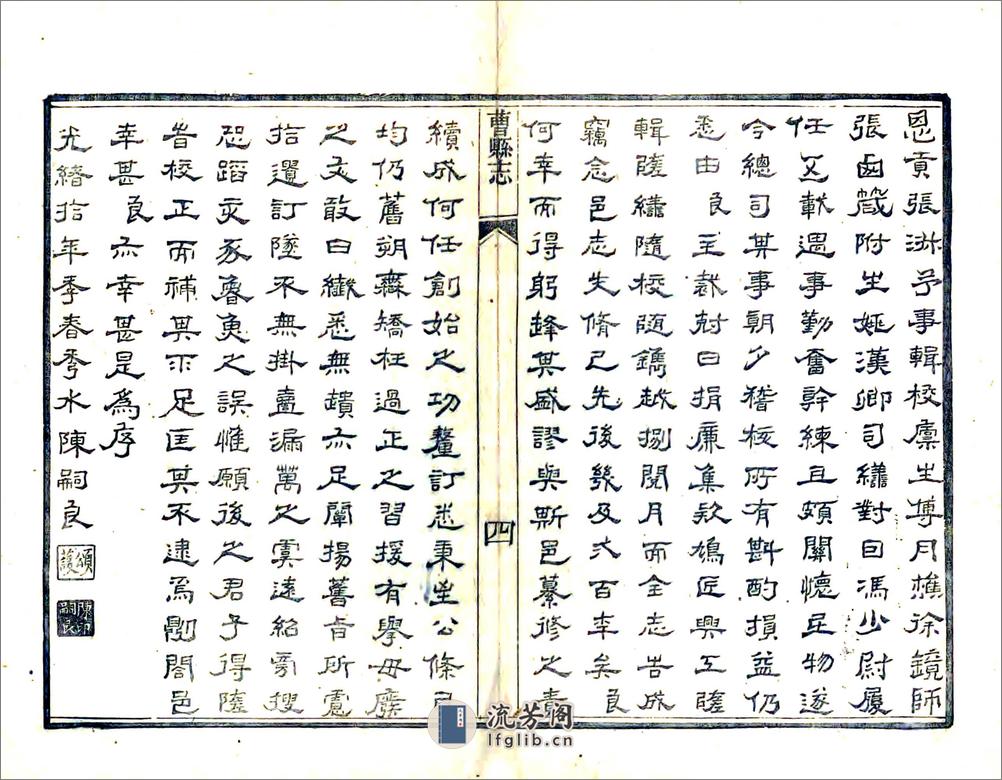 恩貢張洲芧事輯校廩生博月樵徐鏡師
張鹵箴附生姬漢卿司繕對曰馮少尉履
任邑獻遇事勤奮幹練且頗關懷民物遂
今總司其事朝夕稽核所有斟酌損益仍
悉由良主裁尅日捐廉集款鳩匠興工隨
輯隨繕隨校隨鐫越捌閱月而全志告成
竊念邑志失脩已先後幾及弍百年矣良
何幸而得躬逢其盛謬與斯邑纂修之責
曹縣志
四
續成何任創始之功釐訂悉秉公條
均仍舊朔無矯枉過正之習援有舉毋廢
之文敢曰纖悉無蹟亦足闡揚舊旨所慮
拾遺訂墜不無掛壹漏萬之虞遠紹旁搜
恐蹈亥豕魯魚之誤惟願後之君子得隨
皆校正而補其不足匡其不逮焉則閤邑
幸甚良亦幸甚是為序
光緒拾年季春秀水陳嗣良
頌護
陳印嗣良
流芳閣
lfglib.cn